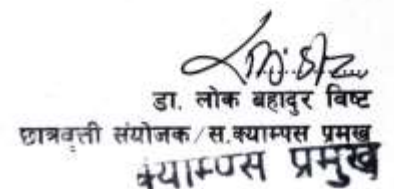 डा. लोक बहादुर विष्ट
छात्रवृत्ती संयोजक/स.क्याम्पस प्रमुख
क्याम्पस प्रमुख